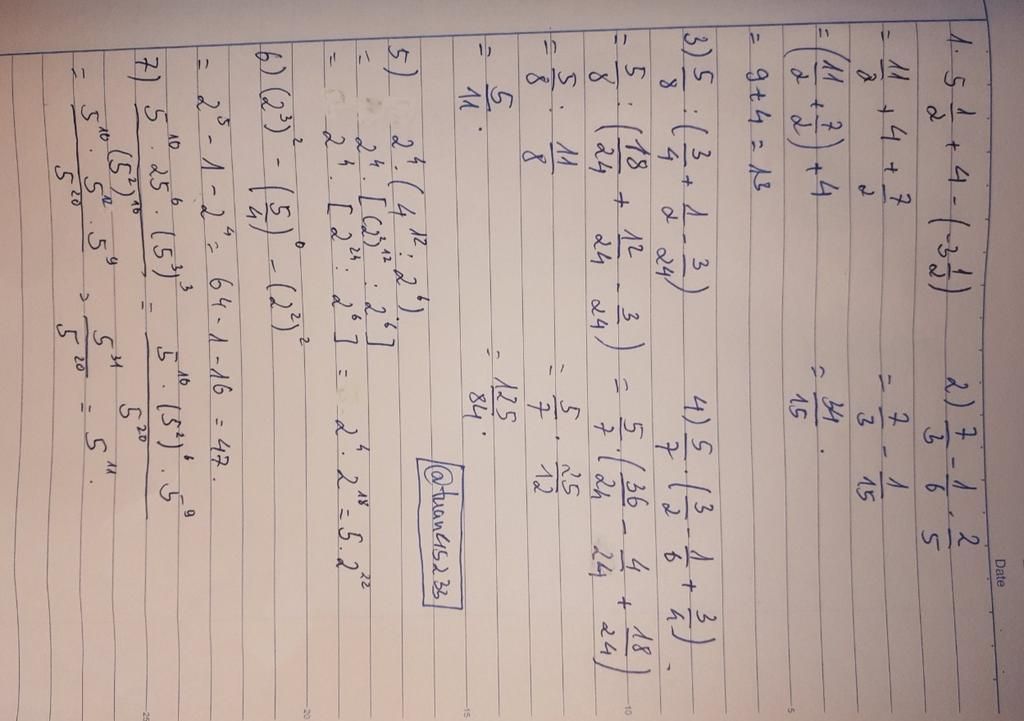 Date
1. 5 1/2 + 4 - (-3 1/2)
= 11/2 + 4 + 7/2
= (11/2 + 7/2) + 4
= 9 + 4 = 13
2) 7/3 - 1/6 . 2/5
= 7/3 - 1/15
= 34/15 .
3) 5/8 : (3/4 + 1/2 - 3/24)
= 5/8 : (18/24 + 12/24 - 3/24)
= 5/8 : 11/8
= 5/11 .
4) 5/7 . (3/2 - 1/6 + 3/4) .
= 5/7 . (36/24 - 4/24 + 18/24)
= 5/7 . 25/12
= 125/84 .
@tuanels233
5) 2^4 . (4^12 : 2^6)
= 2^4 . [(2²)^12 : 2^6]
= 2^4 . [2^24 : 2^6] = 2^4 . 2^18 = 5 . 2^22
6) (2^3)^2 - (5/4)^0 - (2^2)^2
= 2^5 - 1 - 2^4 = 64 - 1 - 16 = 47 .
7) 5^10 . 25^6 . (5^3)^3 / (5^2)^10 = 5^10 . (5^2)^6 . 5^9 / 5^20
= 5^10 . 5^12 . 5^9 / 5^20 = 5^31 / 5^20 = 5^11 .
5
10
15
20
25